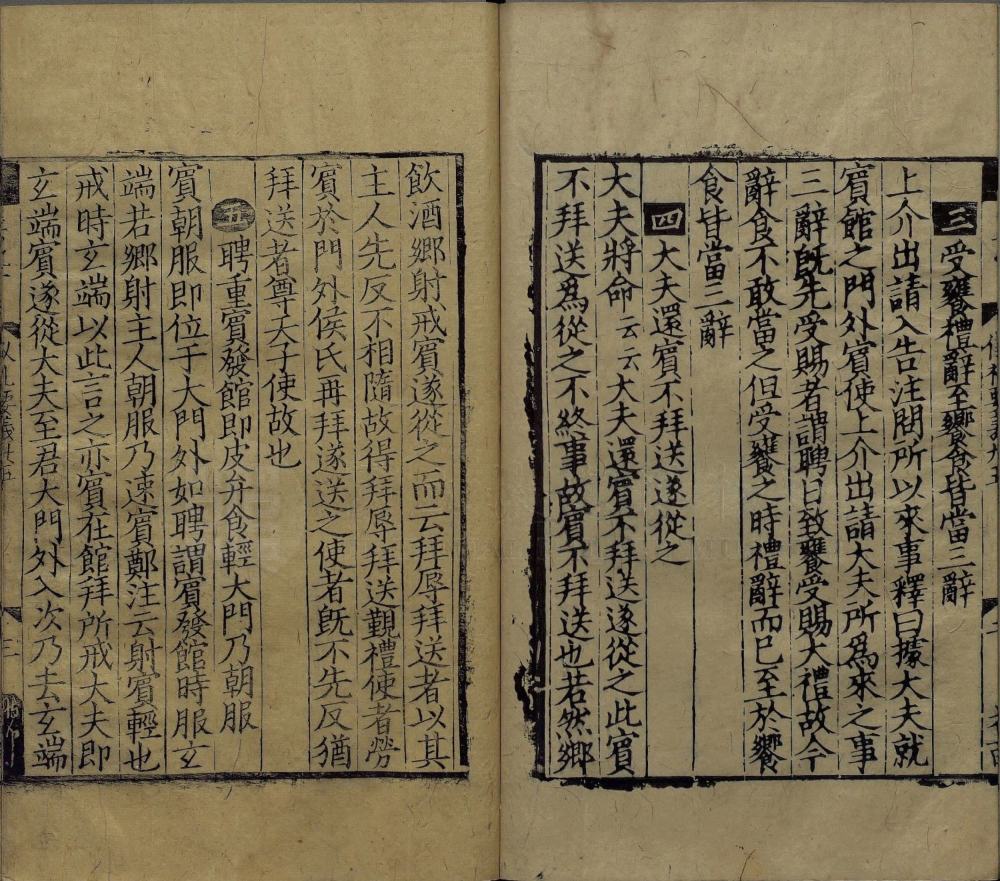 三受饔禮辭至饗食皆當三辭
上介出請入告注問所以來事釋曰據大夫就
賓館之門外賓使上介出請大夫所爲來之事
三辭旣先受賜者謂聘日致饔受賜大禮故今
辭食不敢當之但受饔之時禮辭而已至於饗
食皆當三辭
四大夫還賓不拜送遂從之
大夫將命云云大夫還賓不拜送遂從之此賓
不拜送爲從之不終事故賓不拜送也若然鄉
飲酒鄉射戒賓遂從之而云拜辱拜送者以其
主人先反不相隨故得拜辱拜送覲禮使者勞
賓於門外侯氏再拜遂送之使者旣不先反猶
拜送者尊天子使故也
五聘重賓發館即皮弁食輕大門乃朝服
賓朝服即位于大門外如聘謂賓發館時服玄
端若鄉射主人朝服乃速賓鄭注云射賓輕也
戒時玄端以此言之亦賓在館拜所戒大夫即
玄端賓遂從大夫至君大門外入次乃去玄端